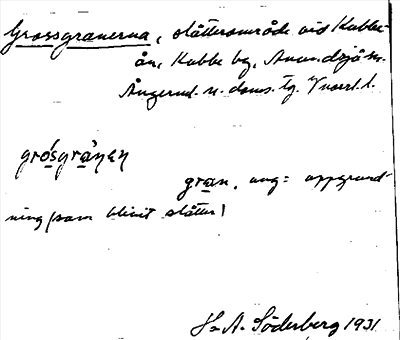 Grossgranerna, slåtterområde vid Kubbe-
ån, Kubbe by, Anundsjö sn.
Ångerml. n. doms. tg. Vnorrl. l.
gró̱sgrà̱nen
gran, ung = uppgrund-
ning (som blivit slåtter)
H. A. Söderberg 1931